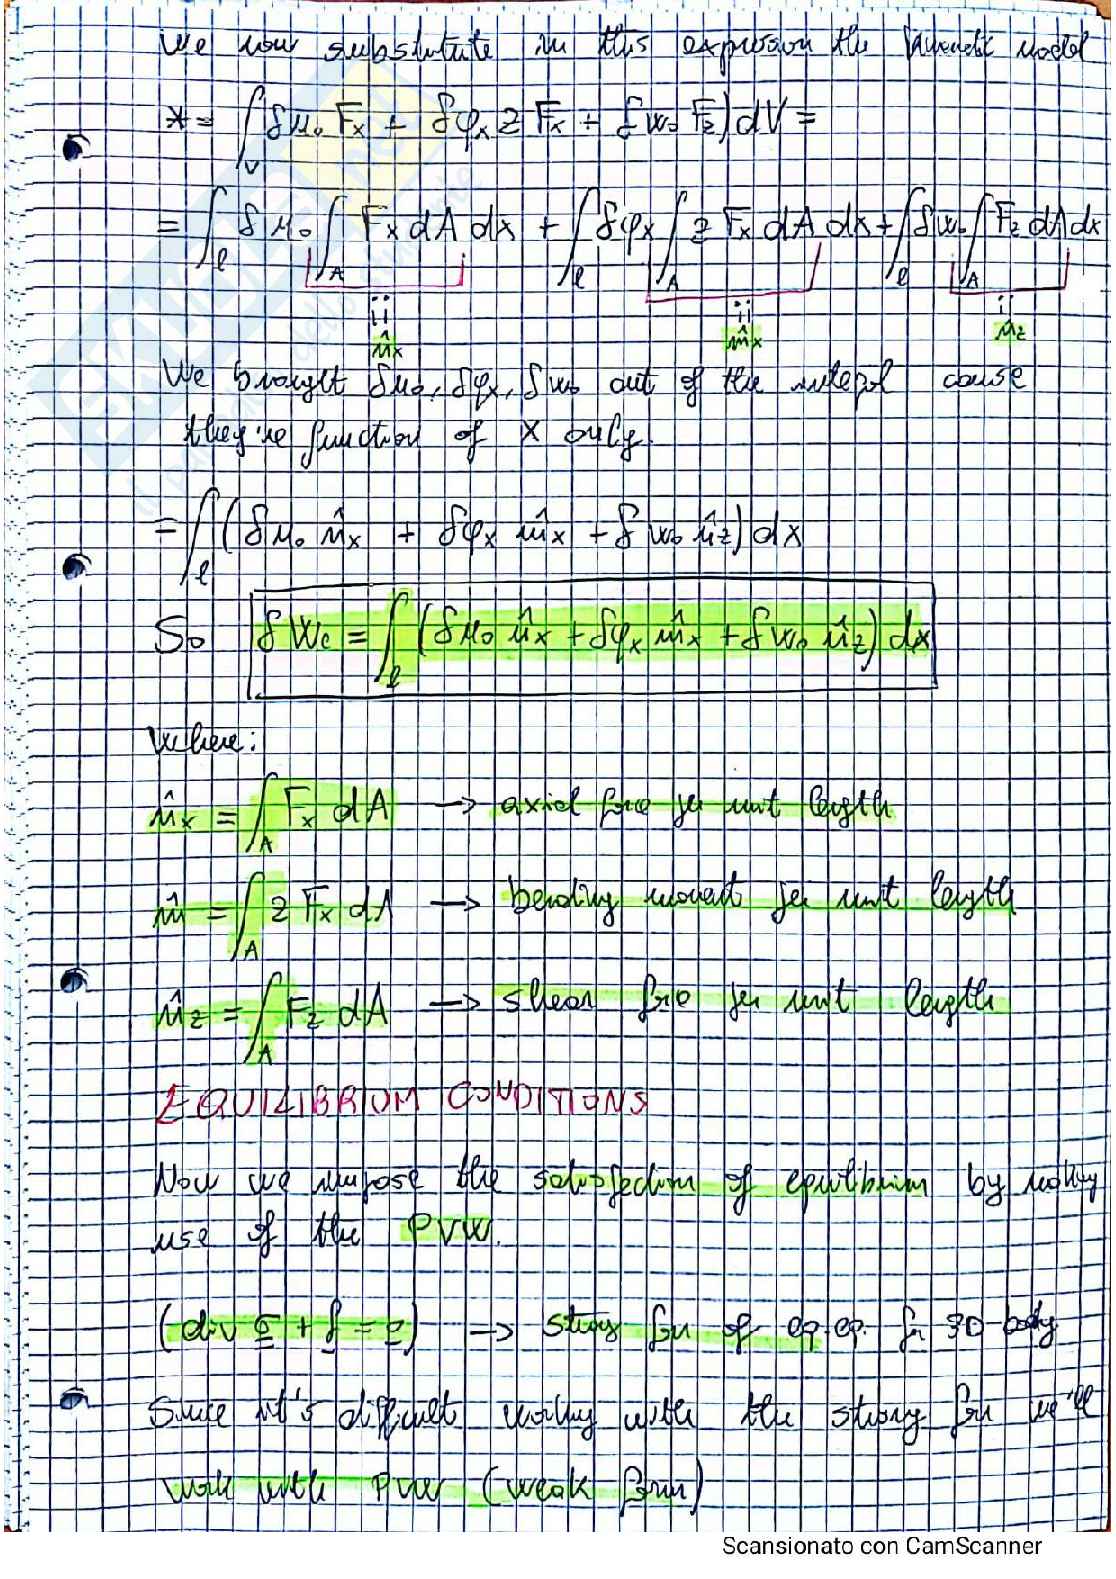 We now substitute in this expression the kinematic model
* = ∫_V (δu₀ F_x + δφ_x z F_x + δw₀ F_z) dV =
= ∫_ℓ δu₀ ∫_A F_x dA dx + ∫_ℓ δφ_x ∫_A z F_x dA dx + ∫_ℓ δw₀ ∫_A F_z dA dx
n̂_x m̂_x n̂_z
We brought δu₀, δφ_x, δw₀ out of the integral cause
they're function of x only
= ∫_ℓ (δu₀ n̂_x + δφ_x m̂_x + δw₀ n̂_z) dx
So δW_e = ∫_ℓ (δu₀ n̂_x + δφ_x m̂_x + δw₀ n̂_z) dx
Where:
n̂_x = ∫_A F_x dA → axial force per unit length
m̂ = ∫_A z F_x dA → bending moment per unit length
n̂_z = ∫_A F_z dA → shear force per unit length
EQUILIBRIUM CONDITIONS
Now we impose the satisfaction of equilibrium by making
use of the PVW.
(div σ + f = 0) → strong form of eq. eq. for 3D body
Since it's difficult working with the strong form we'll
work with PVW (weak form)
Scansionato con CamScanner